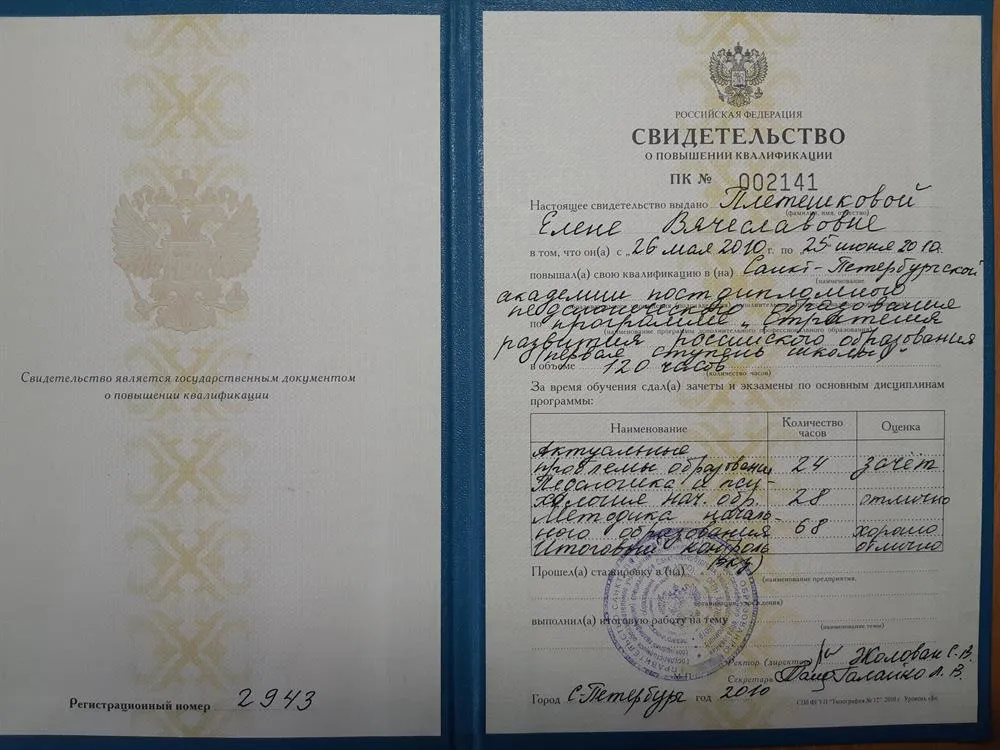 Свидетельство является государственным документом
о повышении квалификации
Регистрационный номер 2943
РОССИЙСКАЯ ФЕДЕРАЦИЯ
СВИДЕТЕЛЬСТВО
О ПОВЫШЕНИИ КВАЛИФИКАЦИИ
ПК № 002141
Настоящее свидетельство выдано Плетешковой
(фамилия, имя, отчество)
Елене Вячеславовне
в том, что он(а) с „26 мая 2010 г. по 25 июня 2010.
повышал(а) свою квалификацию в (на) Санкт-Петербургской
(наименование
академии постдипломного
педагогического образования
по программе „Стратегия
(наименование программы дополнительного профессионального образования)
развития российского образования
первая ступень школы"
в объеме 120 часов
(количество часов)
За время обучения сдал(а) зачеты и экзамены по основным дисциплинам
программы:
Наименование Количество часов Оценка
Актуальные
проблемы образования 24 зачёт
Педагогика и пси-
хология нач. обр. 28 отлично
Методика началь-
ного образования 68 хорошо
Итоговый контроль отлично
Прошел(а) стажировку в (на)
(наименование предприятия,
организации, учреждения)
выполнил(а) итоговую работу на тему
(наименование темы)
Ректор (директор) Жолован С.В.
Секретарь Галайко А. В.
М.П.
Город С-Петербург год 2010
СПб ФГУП "Типография №12" 2010 г. Уровень «Б»